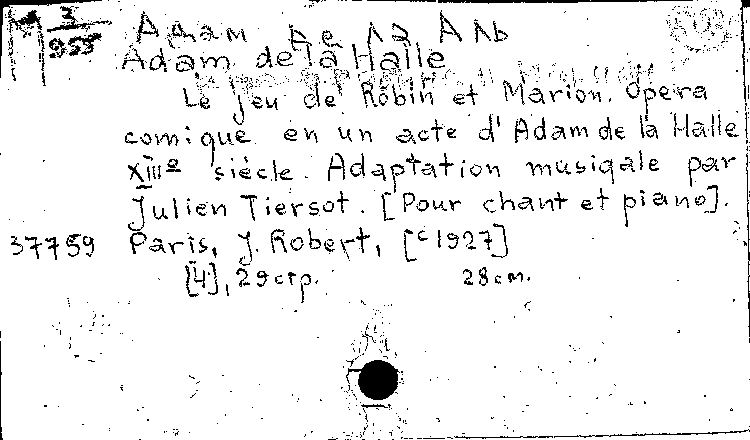 M 3/955
Adam de la Halle
Le jeu de Robin et Marion. Opera
comique en un acte d'Adam de la Halle
XIIIe siècle. Adaptation musiqale par
Julien Tiersot. [Pour chant et piano].
37759 Paris, J. Robert, [c1927]
[4], 29 стр. 28 см.